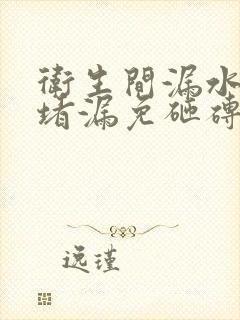 衛生間漏水
堵漏免砸磚
逸瑾